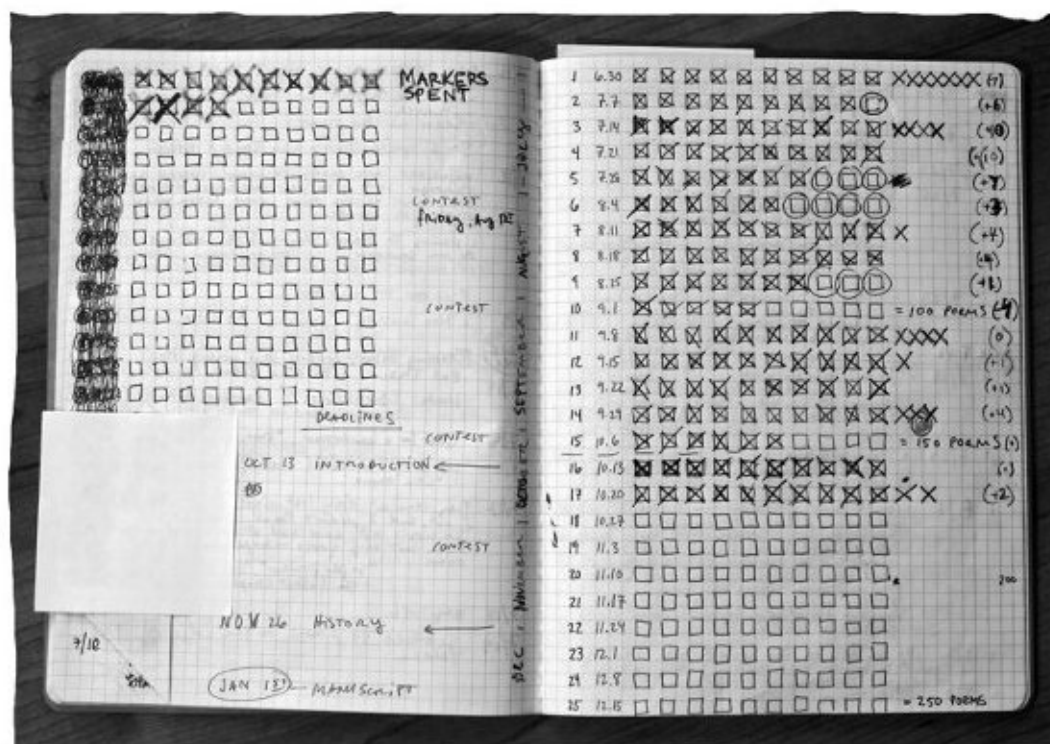 MARKERS
SPENT
CONTEST
FRIDAY, Aug
CONTEST
DEADLINES
CONTEST
OCT 13 INTRODUCTION
CONTEST
NOV 26 HISTORY
7/10
JAN 1ST MANUSCRIPT
DEC | NOVEMBER | OCTOBER | SEPTEMBER | AUGUST | JULY
1 6.30 XXXXXXX
2 7.7
3 7.14 XXXX
4 7.21
5 7.28
6 8.4
7 8.11 X (+4)
8 8.18
9 8.25
10 9.1 = 100 POEMS
11 9.8 XXXX (0)
12 9.15 X (+1)
13 9.22 (+1)
14 9.29 XXX (+4)
15 10.6 = 150 POEMS (0)
16 10.13 (0)
17 10.20 XX (+2)
18 10.27
19 11.3
20 11.10 200
21 11.17
22 11.24
23 12.1
24 12.8
25 12.15 = 250 POEMS